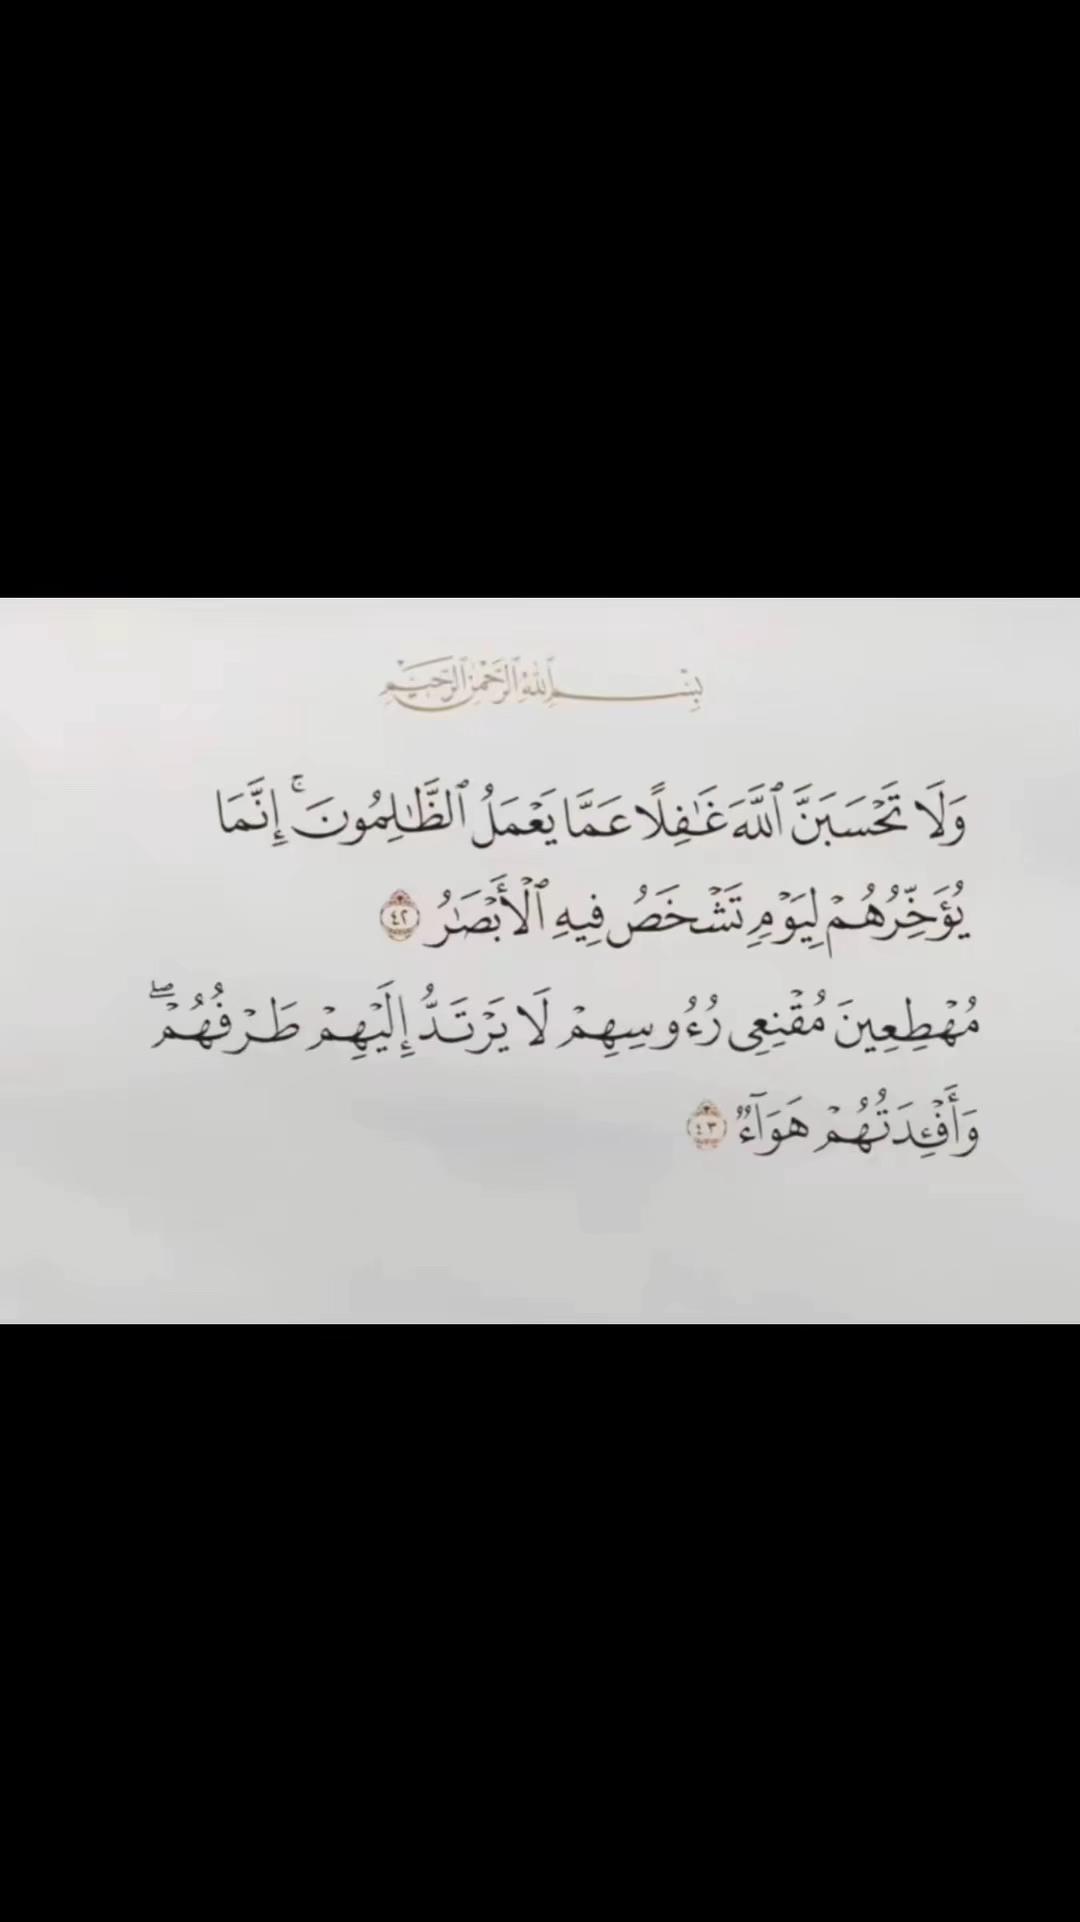 بِسْمِ ٱللَّهِ ٱلرَّحْمَٰنِ ٱلرَّحِيمِ
وَلَا تَحْسَبَنَّ ٱللَّهَ غَٰفِلًا عَمَّا يَعْمَلُ ٱلظَّٰلِمُونَ ۚ إِنَّمَا
يُؤَخِّرُهُمْ لِيَوْمٍ تَشْخَصُ فِيهِ ٱلْأَبْصَٰرُ ٤٢
مُهْطِعِينَ مُقْنِعِى رُءُوسِهِمْ لَا يَرْتَدُّ إِلَيْهِمْ طَرْفُهُمْ ۖ
وَأَفْـِٔدَتُهُمْ هَوَآءٌ ٤٣